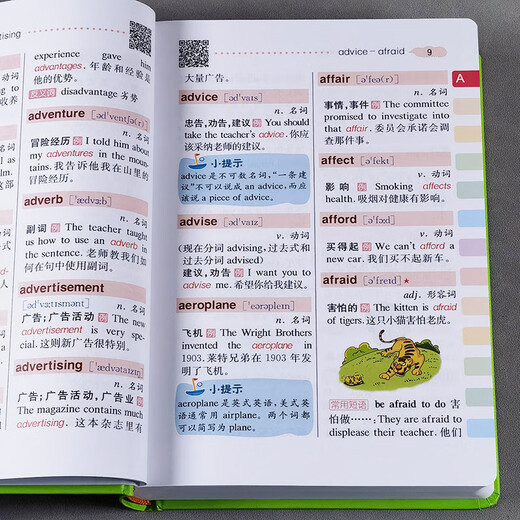 experience gave him
advantages. 年龄和经验是
他的优势。
反义词 disadvantage 劣势
adventure [əd'ventʃə(r)]
n. 名词
冒险经历 例 I told him about
my adventures in the moun-
tains. 我告诉他我在山里的
冒险经历。
adverb ['ædvɜːb]
n. 名词
副词 例 The teacher taught
us how to use an adverb in
the sentence. 老师教我们如
何在句中使用副词。
advertisement
[əd'vɜːtɪsmənt] n. 名词
广告;广告活动 例 The new
advertisement is very spe-
cial. 这则新广告很特别。
advertising ['ædvətaɪzɪŋ]
n. 名词
广告;广告活动,广告业 例
The magazine contains much
advertising. 这本杂志里有
advice – afraid 9
大量广告。
advice [əd'vaɪs]
n. 名词
忠告,劝告,建议 例 You should
take the teacher's advice. 你应
该采纳老师的建议。
小提示
advice 是不可数名词,“一条建
议”不可以说成 an advice,而应
该说 a piece of advice。
advise [əd'vaɪz]
v. 动词
(现在分词 advising,过去式和
过去分词 advised)
建议,劝告 例 I want you to
advise me. 希望你给我建议。
aeroplane ['eərəpleɪn]
n. 名词
飞机 例 The Wright Brothers
invented the aeroplane in
1903. 莱特兄弟在 1903 年发
明了飞机。
小提示
aeroplane 是英式英语,美式英
语通常用 airplane。两个词都
可以简写为 plane。
affair [ə'feə(r)]
n. 名词
事情,事件 例 The committee
promised to investigate into
that affair. 委员会承诺会调
查那件事。
affect [ə'fekt]
v. 动词
影响 例 Smoking affects
health. 吸烟对健康有影响。
afford [ə'fɔːd]
v. 动词
买得起 例 We can't afford a
new car. 我们买不起新车。
afraid [ə'freɪd] ★
adj. 形容词
害怕的 例 The kitten is afraid
of tigers. 这只小猫害怕老虎。
常用短语 be afraid to do 害
怕做……:They are afraid to
displease their teacher. 他们
A